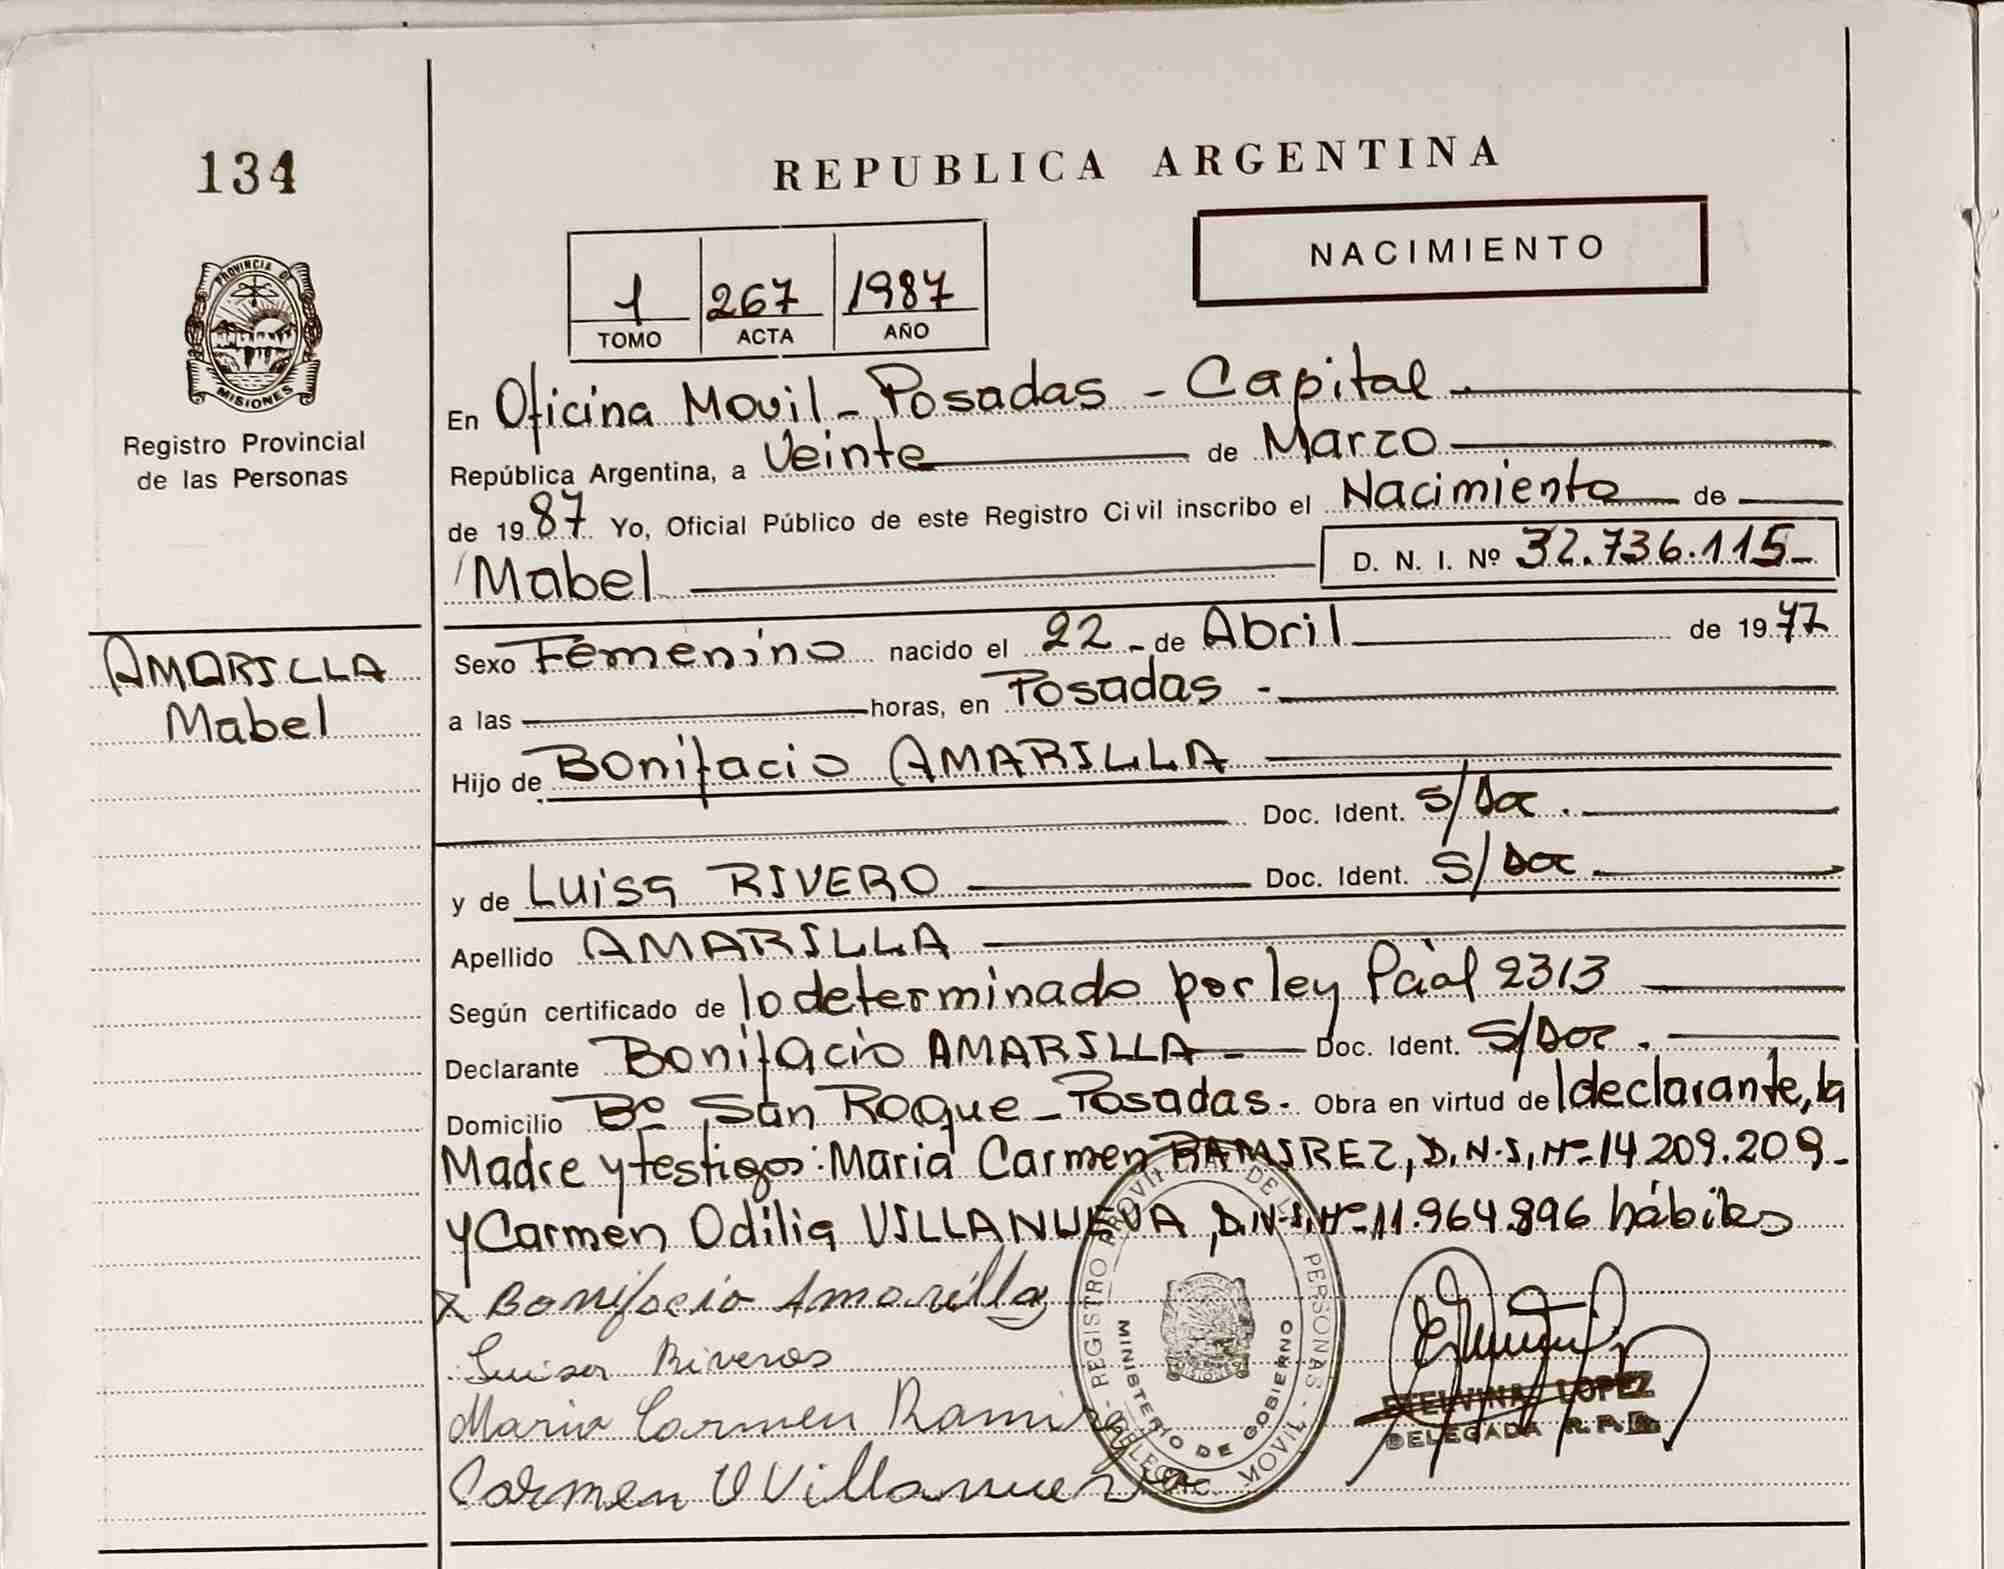 134
REPUBLICA ARGENTINA
NACIMIENTO
1 267 1987
TOMO ACTA AÑO
PROVINCIA DE
MISIONES
Registro Provincial
de las Personas
En Oficina Movil - Posadas - Capital -
República Argentina, a Veinte de Marzo
de 19 87 Yo, Oficial Público de este Registro Civil inscribo el Nacimiento de
Mabel D. N. I. Nº 32.736.115-
AMARILLA
Mabel
Sexo Femenino nacido el 22 - de Abril de 19 77
a las horas, en Posadas -
Hijo de Bonifacio AMARILLA
Doc. Ident. S/Doc.
y de Luisa RIVERO Doc. Ident. S/Doc
Apellido AMARILLA
Según certificado de lo determinado por ley Pcial 2313
Declarante Bonifacio AMARILLA - Doc. Ident. S/Doc.
Domicilio Bº San Roque - Posadas. Obra en virtud de l declarante, la
Madre y testigos: Maria Carmen RAMIREZ, D.N.I, Nº 14.209.209-
y Carmen Odilia VILLANUEVA, D.N.I, Nº 11.964.896 hábiles
X Bonifacio Amarilla
Luisa Riveros
Maria Carmen Ramirez
Carmen O Villanueva
REGISTRO PROVINCIAL DE LAS PERSONAS
MINISTERIO DE GOBIERNO
MOVIL
LOPEZ
DELEGADA R.P.P.